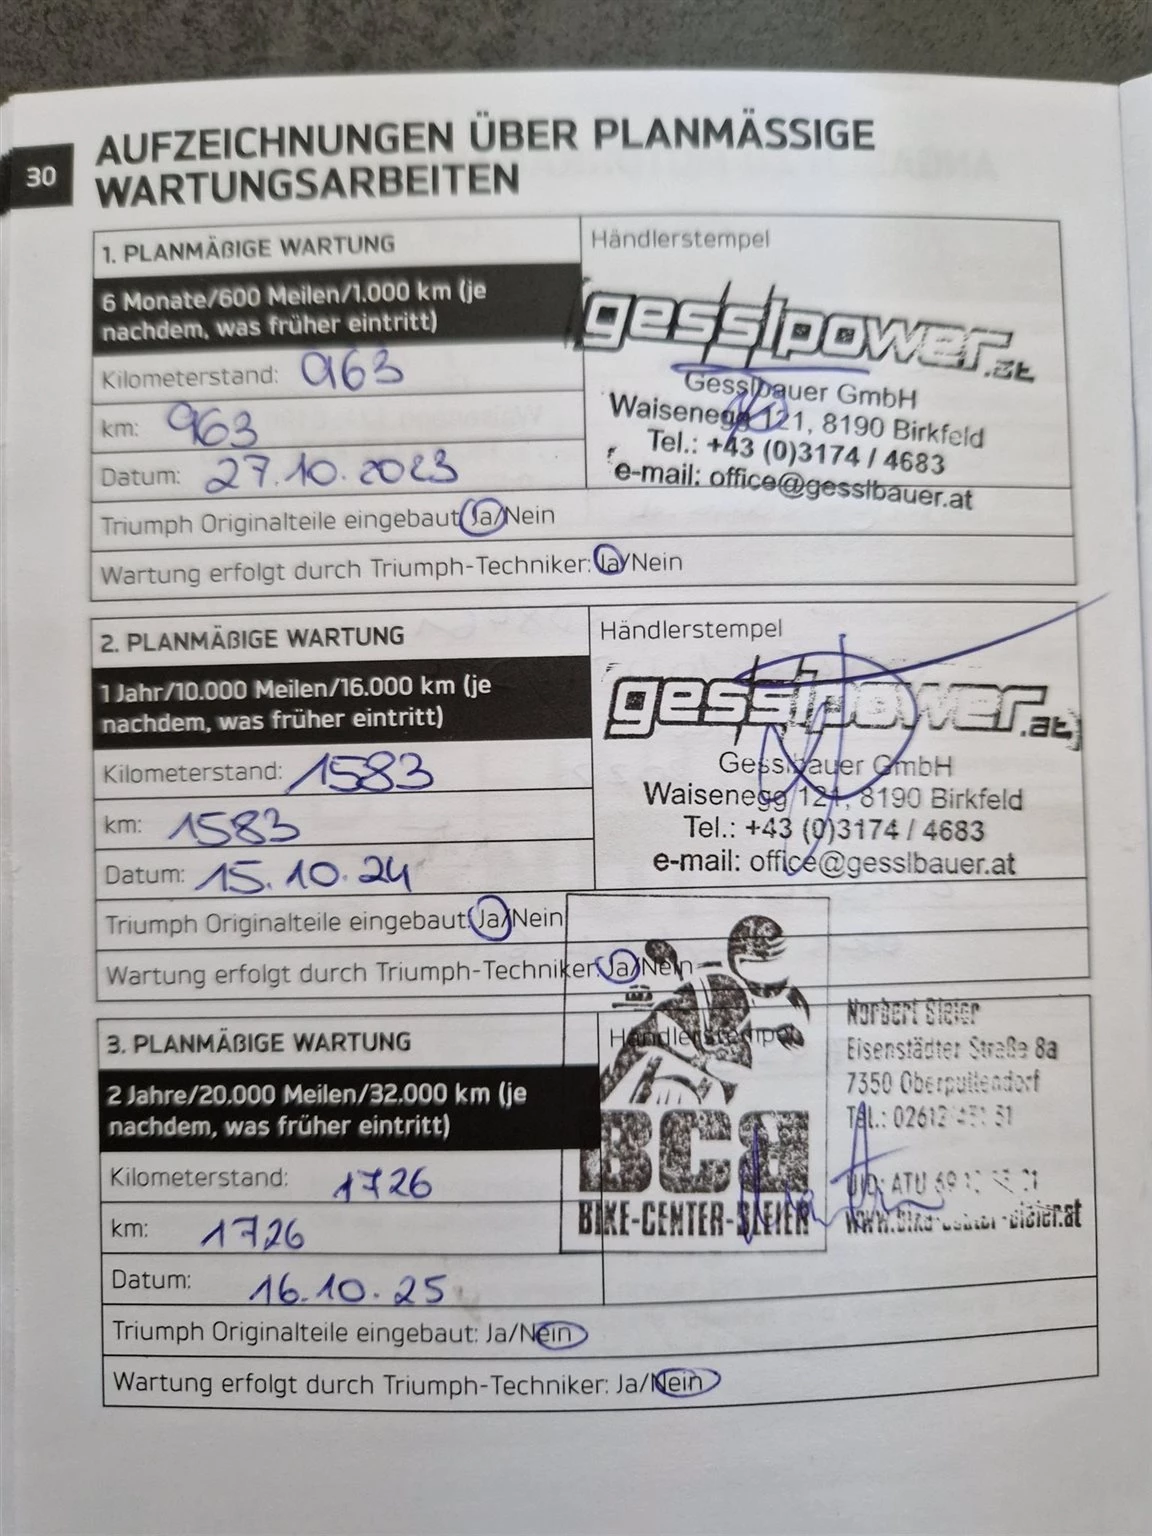 30
AUFZEICHNUNGEN ÜBER PLANMÄSSIGE
WARTUNGSARBEITEN
1. PLANMÄßIGE WARTUNG
6 Monate/600 Meilen/1.000 km (je
nachdem, was früher eintritt)
Kilometerstand: 963
km: 963
Datum: 27.10.2023
Händlerstempel
gesslpower.at
Gesslbauer GmbH
Waisenegg 121, 8190 Birkfeld
Tel.: +43 (0)3174 / 4683
e-mail: office@gesslbauer.at
Triumph Originalteile eingebaut: Ja/Nein
Wartung erfolgt durch Triumph-Techniker: Ja/Nein
2. PLANMÄßIGE WARTUNG
1 Jahr/10.000 Meilen/16.000 km (je
nachdem, was früher eintritt)
Kilometerstand: 1583
km: 1583
Datum: 15.10.24
Händlerstempel
gesslpower.at
Gesslbauer GmbH
Waisenegg 121, 8190 Birkfeld
Tel.: +43 (0)3174 / 4683
e-mail: office@gesslbauer.at
Triumph Originalteile eingebaut: Ja/Nein
Wartung erfolgt durch Triumph-Techniker: Ja/Nein
3. PLANMÄßIGE WARTUNG
2 Jahre/20.000 Meilen/32.000 km (je
nachdem, was früher eintritt)
Kilometerstand: 1726
km: 1726
Datum: 16.10.25
Händlerstempel
BCB
BIKE-CENTER-BLEIER
Norbert Bleier
Eisenstädter Straße 8a
7350 Oberpullendorf
Tel.: 02612
UID: ATU 69
www.bike-center-bleier.at
Triumph Originalteile eingebaut: Ja/Nein
Wartung erfolgt durch Triumph-Techniker: Ja/Nein